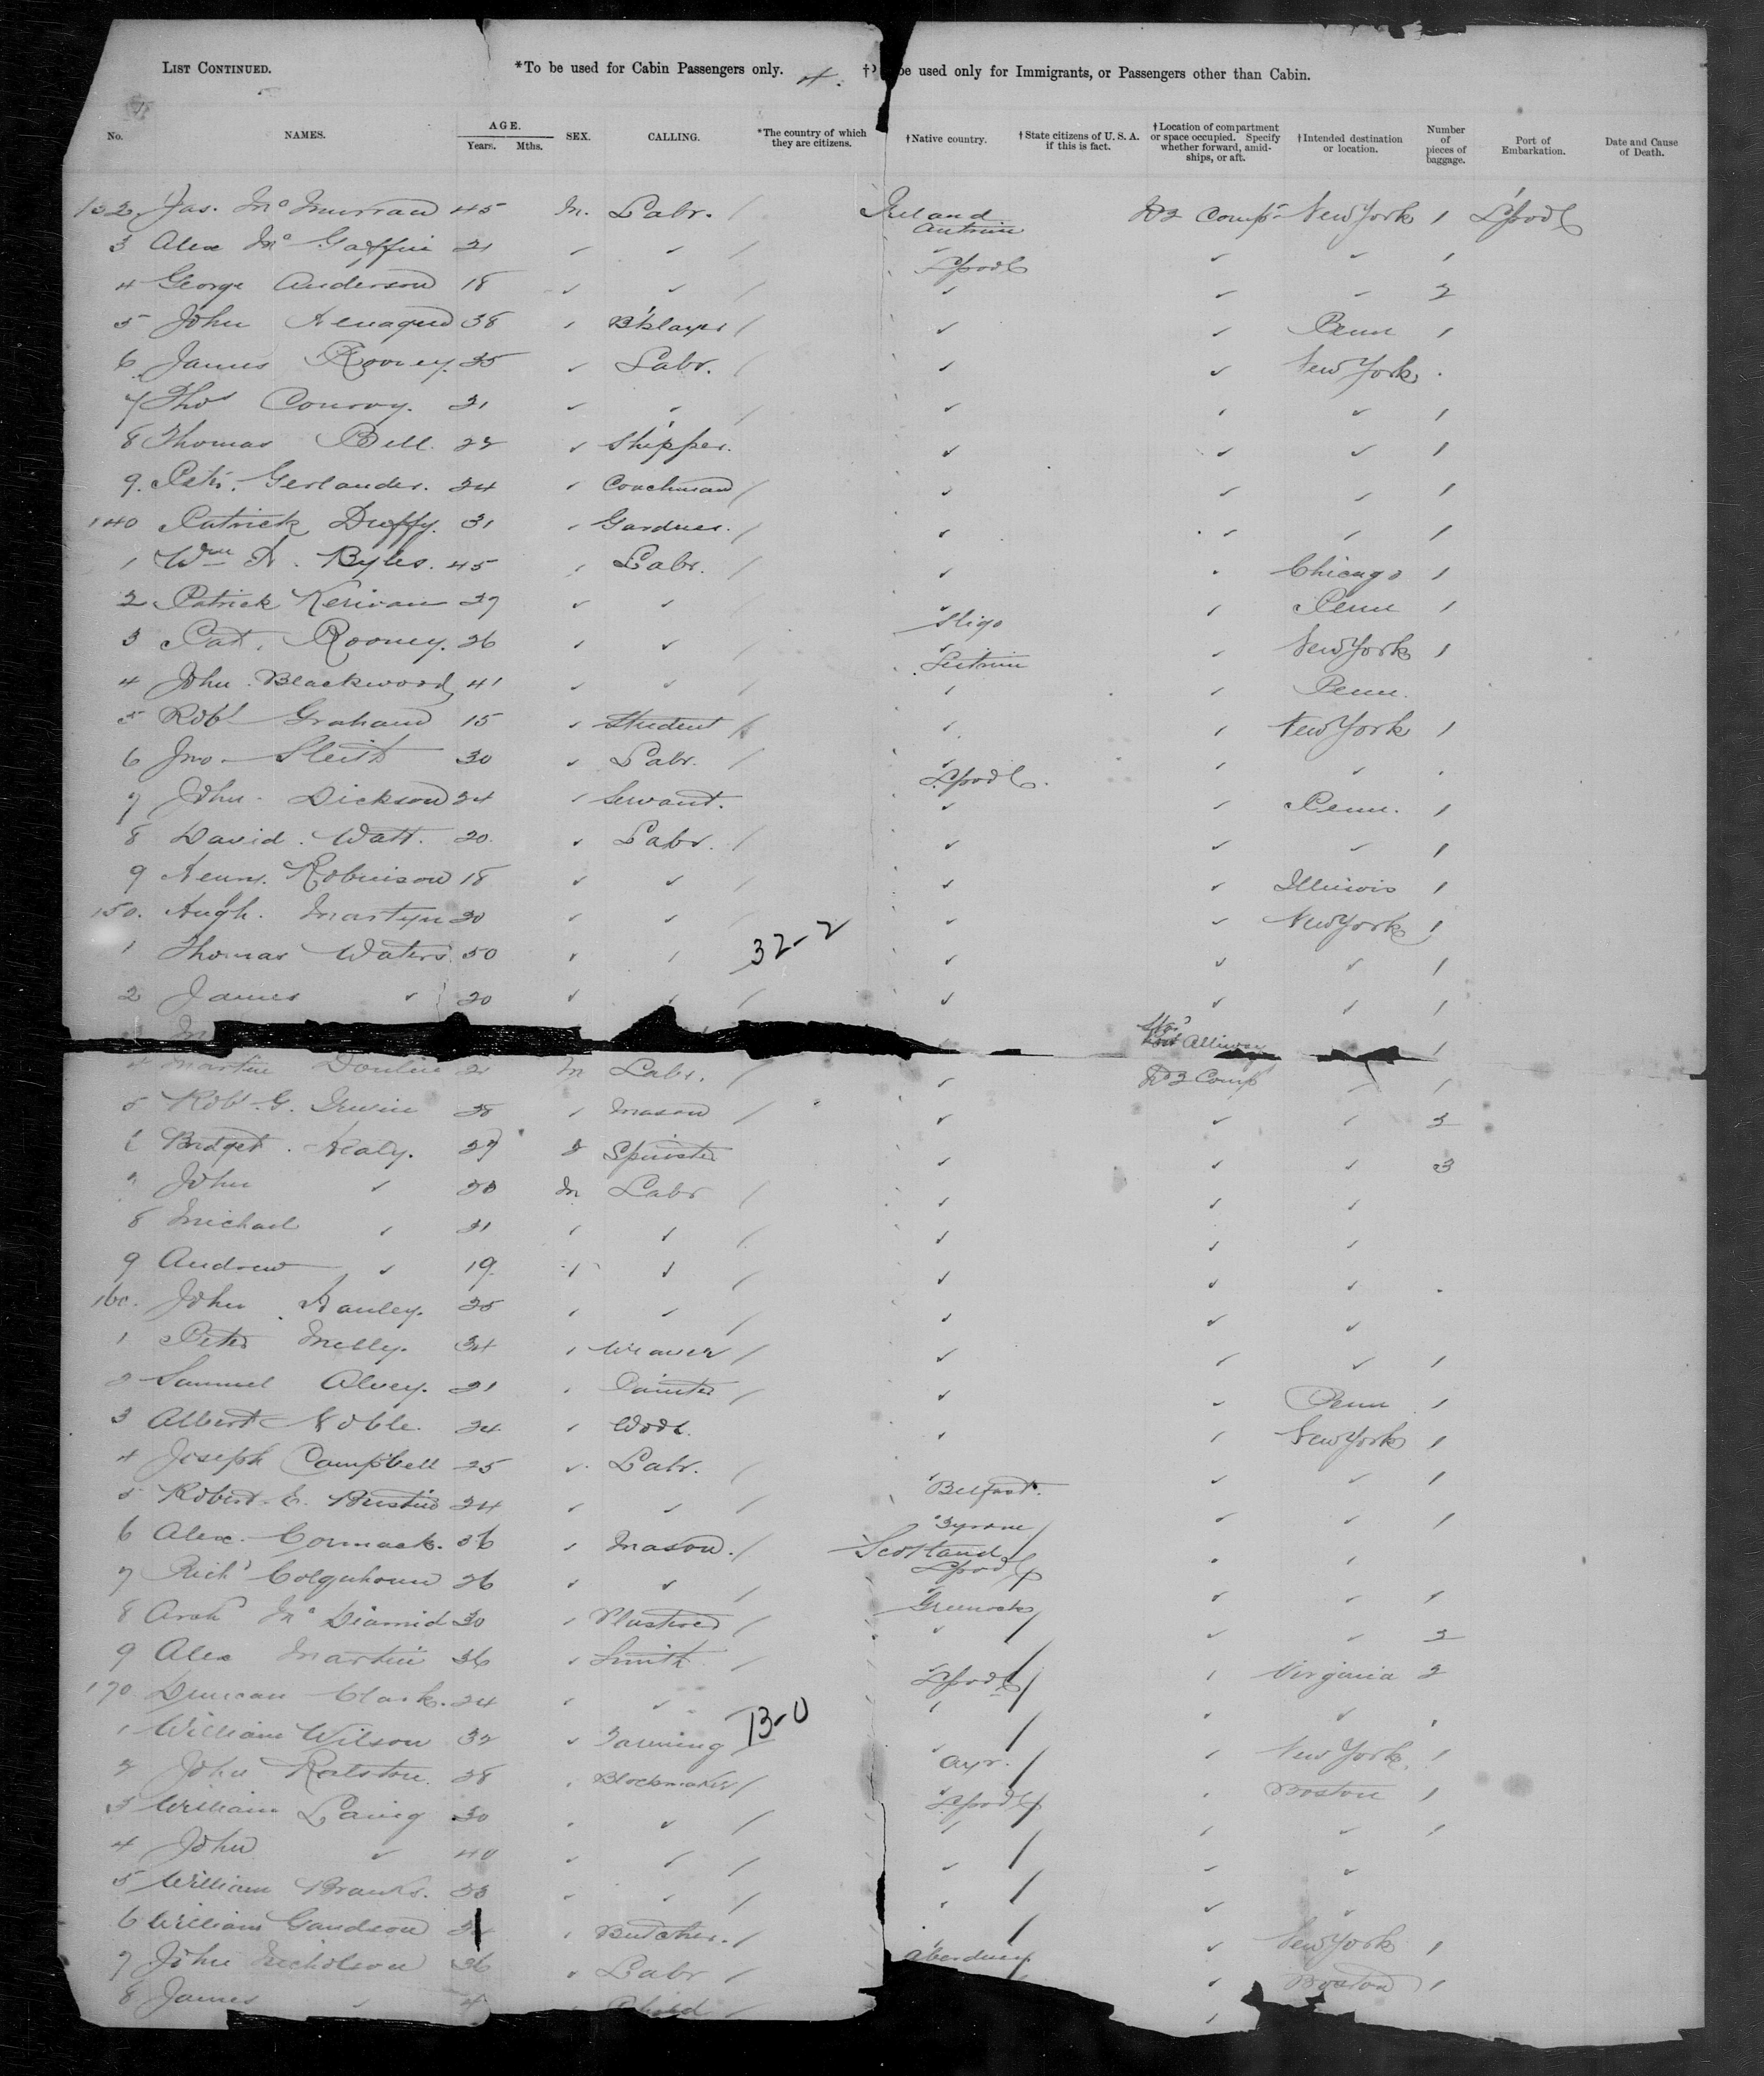 LIST CONTINUED. *To be used for Cabin Passengers only. 4. † be used only for Immigrants, or Passengers other than Cabin.
No. NAMES. AGE. Years. Mths. SEX. CALLING. *The country of which they are citizens. †Native country. †State citizens of U. S. A. if this is fact. †Location of compartment or space occupied. Specify whether forward, amidships, or aft. †Intended destination or location. Number of pieces of baggage. Port of Embarkation. Date and Cause of Death.
132 Jas. Mc Murran 45 M. Labr. / Ireland Antrim No 2 Compt New York 1 L'pool
3 Alex Mc Gaffin 21 ✓ ✓ / L'pool ✓ ✓ 1
4 George Anderson 18 ✓ ✓ / ✓ ✓ ✓ 2
5 John Henagen 38 ✓ B'klayer / ✓ ✓ Penn 1
6 James Rooney. 35 ✓ Labr. / ✓ ✓ New York
7 Thos Conroy. 21 ✓ ✓ / ✓ ✓ ✓ 1
8 Thomas Bell. 22 ✓ Shipper. ✓ ✓ ✓ 1
9. Gerlander. 24 ✓ Coachman / ✓ ✓ ✓ 1
140 Patrick Duffy. 31 ✓ Gardner. / ✓ ✓ ✓ 1
1 Wm H. Byles. 45 ✓ Labr. / ✓ ✓ Chicago 1
2 Patrick Kerivan 27 ✓ ✓ Sligo ✓ Penn 1
3 Pat. Rooney. 26 ✓ ✓ / Leitrim ✓ New York 1
4 John Blackwood 41 ✓ ✓ / ✓ ✓ Penn.
5 Robt Graham 15 ✓ Student / ✓ ✓ New York 1
6 Jno Sleith 30 ✓ Labr. / L'pool ✓ ✓
7 John Dickson 24 ✓ Servant. ✓ ✓ Penn. 1
8 David Watt. 20 ✓ Labr. / ✓ ✓ ✓ 1
9 Henry Robinson 18 ✓ ✓ / ✓ ✓ Illinois 1
150. Hugh. Martyn 20 ✓ ✓ / ✓ ✓ New York 1
1 Thomas Waters. 50 ✓ ✓ 32-2 ✓ ✓ ✓ 1
2 James ✓ 20 ✓ ✓ / ✓ ✓ ✓ 1
3 M 1
4 Martin 21 M Labr. / ✓ No 2 Comp ✓ 1
5 Robt. G. Irwin 28 ✓ Mason / ✓ ✓ ✓ 2
6 Bridget Healy. 27 F Spinster ✓ ✓ ✓ 3
7 John ✓ 20 M Labr / ✓ ✓ ✓
8 Michael ✓ 21 ✓ ✓ / ✓ ✓ ✓
9 Andrew ✓ 19 ✓ ✓ / ✓ ✓ ✓
160. John Hanley. 25 ✓ ✓ / ✓ ✓ ✓
1 Peter Melly. 34 ✓ Weaver / ✓ ✓ ✓ 1
2 Samuel Alvey. 21 ✓ Painter / ✓ ✓ Penn 1
3 Albert Noble. 24 ✓ ✓ ✓ New York 1
4 Joseph Campbell 25 ✓ Labr. / Belfast. ✓ ✓ 1
5 Robert. E. 24 ✓ ✓ / Tyrone ✓ ✓ 1
6 Alex. Cormack. 36 ✓ Mason. / Scotland L'pool ✓ ✓
7 Richd Colquhoun 26 ✓ ✓ / Greenock ✓ ✓ 1
8 Archd Mc Diamid 30 ✓ Plasterer / ✓ ✓ ✓ 2
9 Alex Martin 36 ✓ Smith / L'pool ✓ Virginia 2
170 Duncan Clark. 24 ✓ ✓ ✓ ✓ ✓ 1
1 William Wilson 32 ✓ Farming 13-0 Ayr. ✓ New York. 1
2 John Ralston. 28 ✓ Blockmaker / L'pool ✓ Boston 1
3 William Laing 30 ✓ ✓ / ✓ ✓ ✓ 1
4 John ✓ 40 ✓ ✓ / ✓ ✓ ✓
5 William Branks. 33 ✓ ✓ / ✓ ✓ ✓
6 William Gandson 24 ✓ Butcher. / ✓ ✓ New York 1
7 John Nicholson 26 ✓ Labr / Aberdeen ✓ Boston 1
8 James ✓ 4 Child / ✓